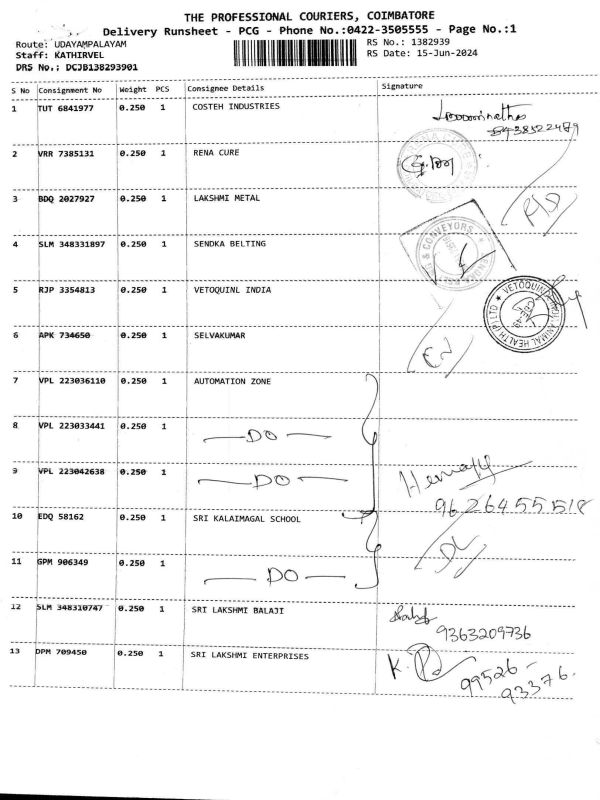 THE PROFESSIONAL COURIERS, COIMBATORE
Delivery Runsheet - PCG - Phone No.:0422-3505555 - Page No.:1
Route: UDAYAMPALAYAM
RS No.: 1382939
Staff: KATHIRVEL
RS Date: 15-Jun-2024
DRS No.: DCJB138293901
S No Consignment No Weight PCS Consignee Details Signature
1 TUT 6841977 0.250 1 COSTEH INDUSTRIES
2 VRR 7385131 0.250 1 RENA CURE
3 BDQ 2027927 0.250 1 LAKSHMI METAL
4 SLM 348331897 0.250 1 SENDKA BELTING
& CONVEYORS
5 RJP 3354813 0.250 1 VETOQUINL INDIA
ANIMAL HEALTH (P) LTD
6 APK 734650 0.250 1 SELVAKUMAR
7 VPL 223036110 0.250 1 AUTOMATION ZONE
8 VPL 223033441 0.250 1 — DO —
9 VPL 223042638 0.250 1 — DO —
96264555518
10 EDQ 58162 0.250 1 SRI KALAIMAGAL SCHOOL
11 GPM 906349 0.250 1 — DO —
12 SLM 348310747 0.250 1 SRI LAKSHMI BALAJI
9363209736
13 DPM 709450 0.250 1 SRI LAKSHMI ENTERPRISES
99526-
93376.